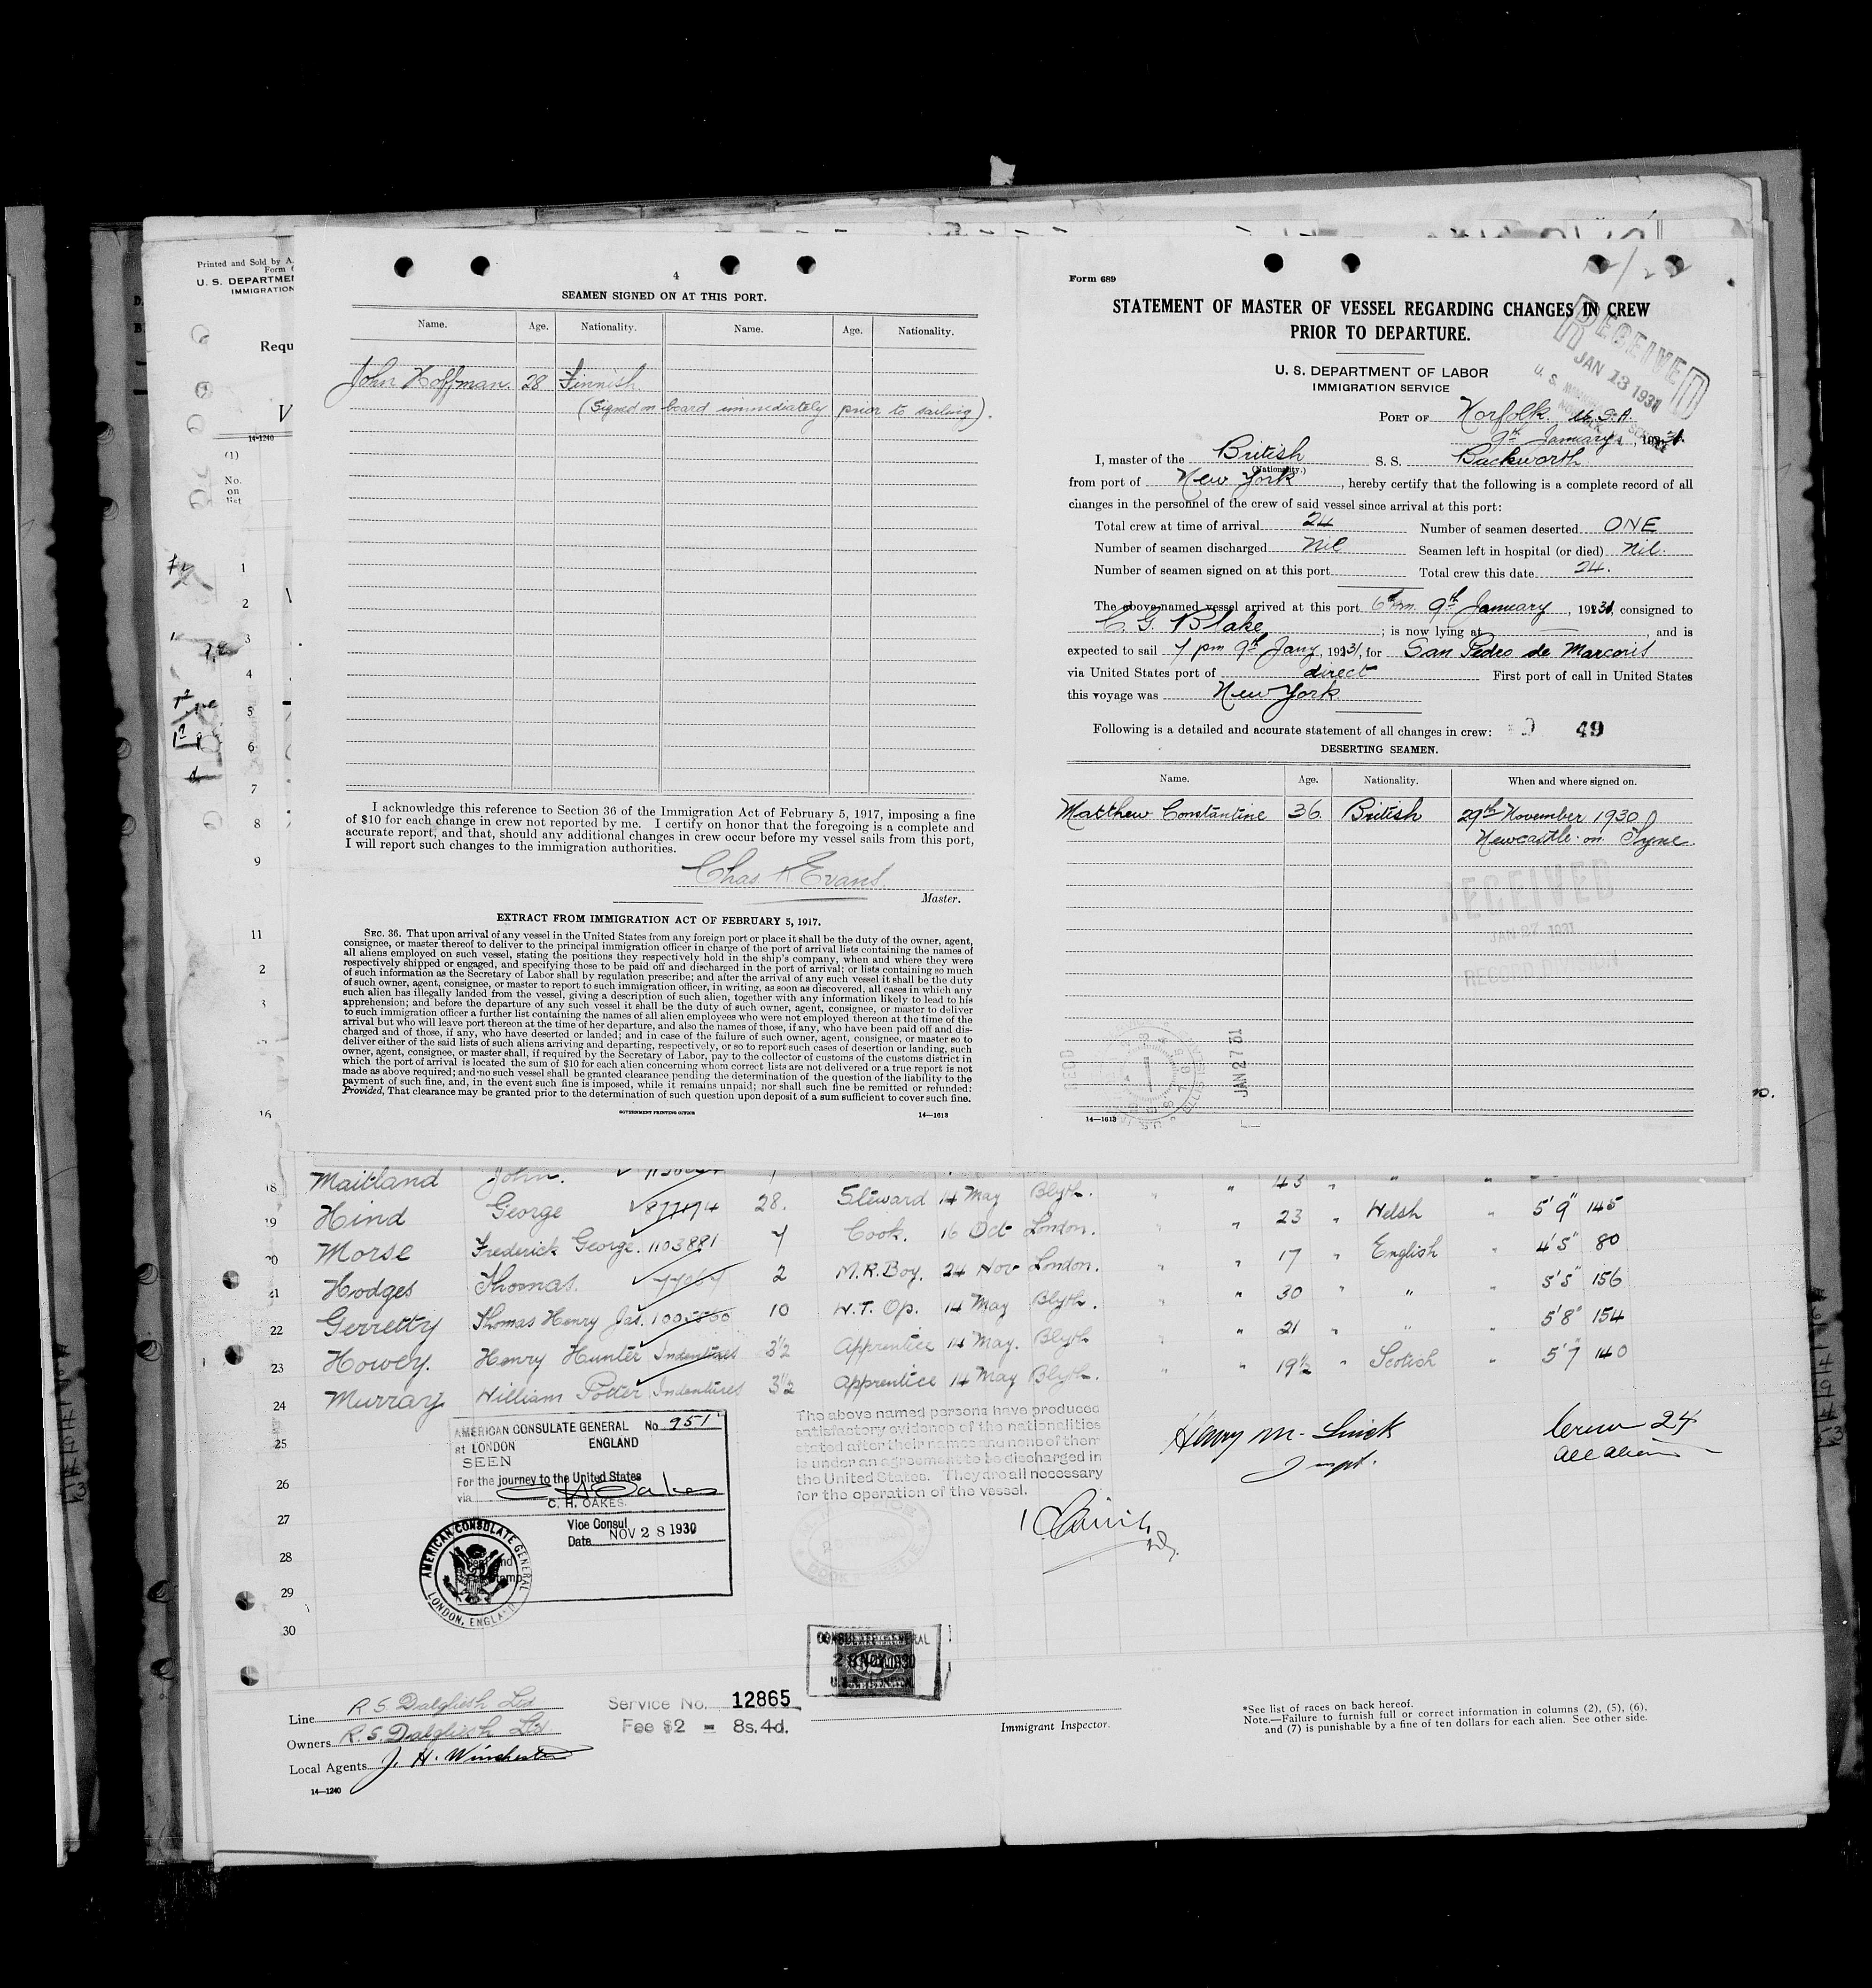 Printed and Sold by A.
U. S. DEPARTME
IMMIGRATION
Requ
14-1240
(1)
No.
on
list
4
SEAMEN SIGNED ON AT THIS PORT.
Name. Age. Nationality. Name. Age. Nationality.
John Hoffman. 28 Finnish
(Signed on board immediately prior to sailing).
I acknowledge this reference to Section 36 of the Immigration Act of February 5, 1917, imposing a fine
of $10 for each change in crew not reported by me. I certify on honor that the foregoing is a complete and
accurate report, and that, should any additional changes in crew occur before my vessel sails from this port,
I will report such changes to the immigration authorities.
Chas Evans
Master.
EXTRACT FROM IMMIGRATION ACT OF FEBRUARY 5, 1917.
SEC. 36. That upon arrival of any vessel in the United States from any foreign port or place it shall be the duty of the owner, agent,
consignee, or master thereof to deliver to the principal immigration officer in charge of the port of arrival lists containing the names of
all aliens employed on such vessel, stating the positions they respectively hold in the ship's company, when and where they were
respectively shipped or engaged, and specifying those to be paid off and discharged in the port of arrival; or lists containing so much
of such information as the Secretary of Labor shall by regulation prescribe; and after the arrival of any such vessel it shall be the duty
of such owner, agent, consignee, or master to report to such immigration officer, in writing, as soon as discovered, all cases in which any
such alien has illegally landed from the vessel, giving a description of such alien, together with any information likely to lead to his
apprehension; and before the departure of any such vessel it shall be the duty of such owner, agent, consignee, or master to deliver
to such immigration officer a further list containing the names of all alien employees who were not employed thereon at the time of the
arrival but who will leave port thereon at the time of her departure, and also the names of those, if any, who have been paid off and dis-
charged and of those, if any, who have deserted or landed; and in case of the failure of such owner, agent, consignee, or master so to
deliver either of the said lists of such aliens arriving and departing, respectively, or so to report such cases of desertion or landing, such
owner, agent, consignee, or master shall, if required by the Secretary of Labor, pay to the collector of customs of the customs district in
which the port of arrival is located the sum of $10 for each alien concerning whom correct lists are not delivered or a true report is not
made as above required; and no such vessel shall be granted clearance pending the determination of the question of the liability to the
payment of such fine, and, in the event such fine is imposed, while it remains unpaid; nor shall such fine be remitted or refunded:
Provided, That clearance may be granted prior to the determination of such question upon deposit of a sum sufficient to cover such fine.
GOVERNMENT PRINTING OFFICE 14—1613
Form 689
STATEMENT OF MASTER OF VESSEL REGARDING CHANGES IN CREW
PRIOR TO DEPARTURE.
RECEIVED
JAN 13 1931
U. S. DEPARTMENT OF LABOR
IMMIGRATION SERVICE
PORT OF Norfolk. U.S.A.
9th January, 1931.
I, master of the British S. S. Backworth
(Nationality.)
from port of New York, hereby certify that the following is a complete record of all
changes in the personnel of the crew of said vessel since arrival at this port:
Total crew at time of arrival 24 Number of seamen deserted ONE
Number of seamen discharged Nil Seamen left in hospital (or died) Nil.
Number of seamen signed on at this port Total crew this date 24.
The above-named vessel arrived at this port 6 9th January, 1931, consigned to
C. G. Blake; is now lying at —, and is
expected to sail 7 pm 9th Jany, 1931, for San Pedro de Marcoris
via United States port of direct First port of call in United States
this voyage was New York
Following is a detailed and accurate statement of all changes in crew: 49
DESERTING SEAMEN.
Name. Age. Nationality. When and where signed on.
Matthew Constantine 36. British 29th November 1930
Newcastle-on Tyne.
RECEIVED
JAN 27 1931
RECORD DIVISION
JAN 27 31
14—1613
18 Maitland John.
19 Hind George 877174 28. Steward 14 May Blyth. 43
20 Morse Frederick George. 1103881 4 Cook. 16 Oct London. 23 Welsh 5'9" 145
21 Hodges Thomas. 2 M.R.Boy. 24 Nov London. 17 English 4'5" 80
22 Gerretty Thomas Henry Jas. 10 W.T. Op. 14 May Blyth. 30 " 5'5" 156
23 Howey. Henry Hunter Indentures 3½ Apprentice 14 May. Blyth 21 " 5'8" 154
24 Murray William Potter Indentures 3½ Apprentice 14 May Blyth. 19½ Scotish 5'7" 140
25
26
27
28
29
30
AMERICAN CONSULATE GENERAL No 951
at LONDON ENGLAND
SEEN
For the journey to the United States
via
C. H. OAKES.
Vice Consul
Date NOV 28 1930
AMERICAN CONSULATE GENERAL
LONDON, ENGLAND
The above named persons have produced
satisfactory evidence of the nationalities
stated after their names and none of them
is under an agreement to be discharged in
the United States. They are all necessary
for the operation of the vessel.
Crew 24
All alien
28 NOV 1930
Line R S Dalgliesh Ltd
Owners R. S. Dalgliesh Ltd
Local Agents J. H. Winchester
14—1240
Service No. 12865
Fee $2 = 8s. 4d.
Immigrant Inspector.
*See list of races on back hereof.
Note.—Failure to furnish full or correct information in columns (2), (5), (6),
and (7) is punishable by a fine of ten dollars for each alien. See other side.